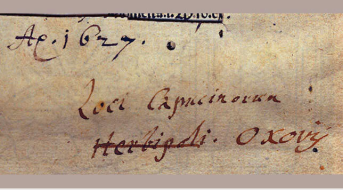 Ap. 1627.
Loci Capucinorum
Herbipoli. Oxovij